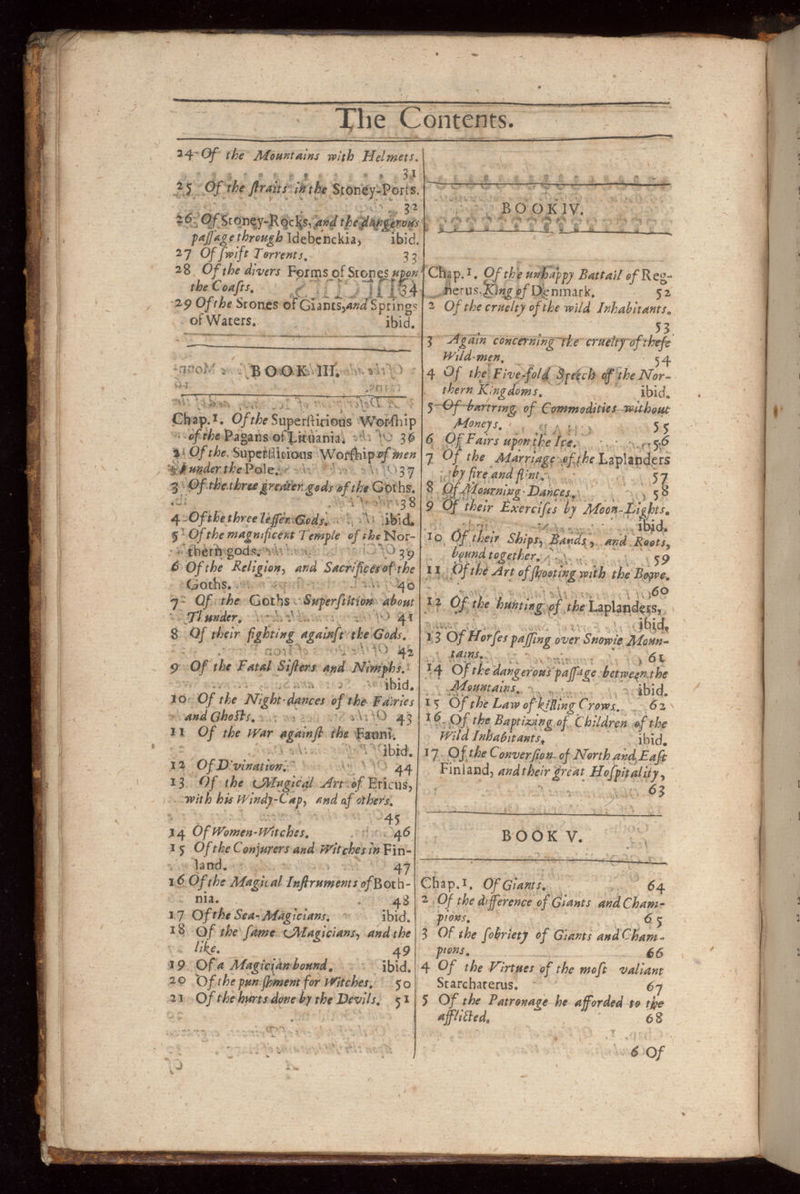 The Contents.
24 Of the Mountains with Helmets.
31
25 Of the ſtraits in the Stoney-Ports.
32
26 Of Stoney-Rocks, and the dangerous
paſſage through Idebenckia, ibid.
27 Of ſwift Torrents. 33
28 Of the divers Forms of Stones upon
the Coaſts. 34
29 Of the Stones of Giants, and Springs
of Waters. ibid.
BOOK III.
Chap. 1. Of the Superſtitious Worſhip
of the Pagans of Lituania. 36
2 Of the Superſtitious Worſhip of men
under the Pole. 37
3 Of the three greater gods of the Goths.
38
4 Of the three leſſer Gods. ibid.
5 Of the magnificent Temple of the Nor-
thern gods. 39
6 Of the Religion, and Sacrifices of the
Goths. 40
7 Of the Goths Superſtition about
Thunder. 41
8 Of their fighting againſt the Gods.
42
9 Of the Fatal Siſters and Nimphs.
ibid.
10 Of the Night-dances of the Fairies
and Ghoſts. 43
11 Of the War againſt the Fauni.
ibid.
12 Of Divination. 44
13 Of the Magical Art of Ericus,
with his Windy-Cap, and of others.
45
14 Of Women-Witches. 46
15 Of the Conjurers and Witches in Fin-
land. 47
16 Of the Magical Inſtruments of Both-
nia. 48
17 Of the Sea-Magicians. ibid.
18 Of the ſame Magicians, and the
like. 49
19 Of a Magician bound. ibid.
20 Of the puniſhment for Witches. 50
21 Of the hurts done by the Devils. 51
BOOK IV.
Chap. 1. Of the unhappy Battail of Reg-
nerus, King of Denmark. 52
2 Of the cruelty of the wild Inhabitants.
53
3 Again concerning the cruelty of theſe
Wild-men. 54
4 Of the Five-fold Speech of the Nor-
thern Kingdoms. ibid.
5 Of bartring of Commodities without
Moneys. 55
6 Of Fairs upon the Ice. 56
7 Of the Marriage of the Laplanders
by fire and flint. 57
8 Of Mourning Dances. 58
9 Of their Exerciſes by Moon-Lights.
ibid.
10 Of their Ships, Bands, and Roots,
bound together. 59
11 Of the Art of ſhooting with the Bowe.
60
12 Of the hunting of the Laplanders,
ibid.
13 Of Horſes paſſing over Snowie Moun-
tains. 61
14 Of the dangerous paſſage between the
Mountains. ibid.
15 Of the Law of killing Crows. 62
16 Of the Baptizing of Children of the
Wild Inhabitants. ibid.
17 Of the Converſion of North and Eaſt
Finland, and their great Hoſpitality,
63
BOOK V.
Chap. 1. Of Giants. 64
2 Of the difference of Giants and Cham-
pions. 65
3 Of the ſobriety of Giants and Cham-
pions. 66
4 Of the Virtues of the moſt valiant
Starchaterus. 67
5 Of the Patronage he afforded to the
afflicted. 68
6 Of